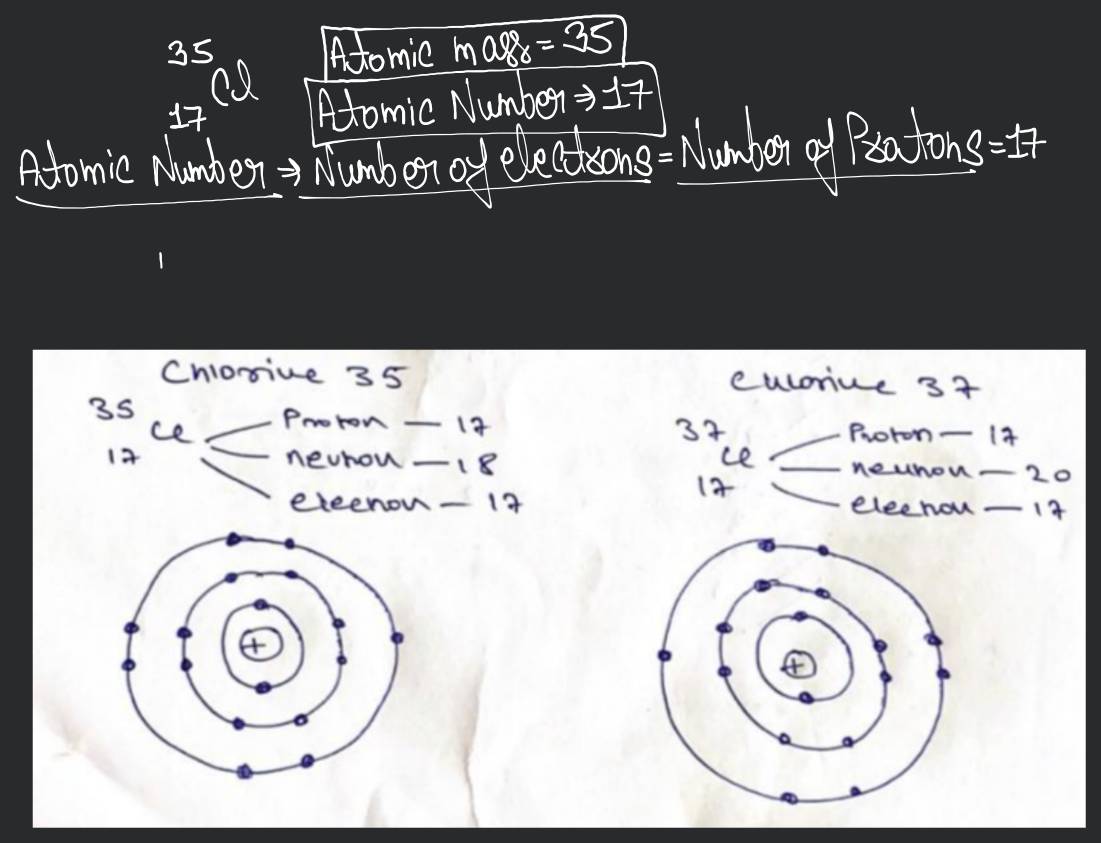 35
Cl
17
Atomic mass = 35
Atomic Number ⇒ 17
Atomic Number ⇒ Number of electrons = Number of Protons = 17
Chlorine 35
35
Cl
17
Proton — 17
neutron — 18
electron — 17
Chlorine 37
37
Cl
17
Proton — 17
neutron — 20
electron — 17
+
+